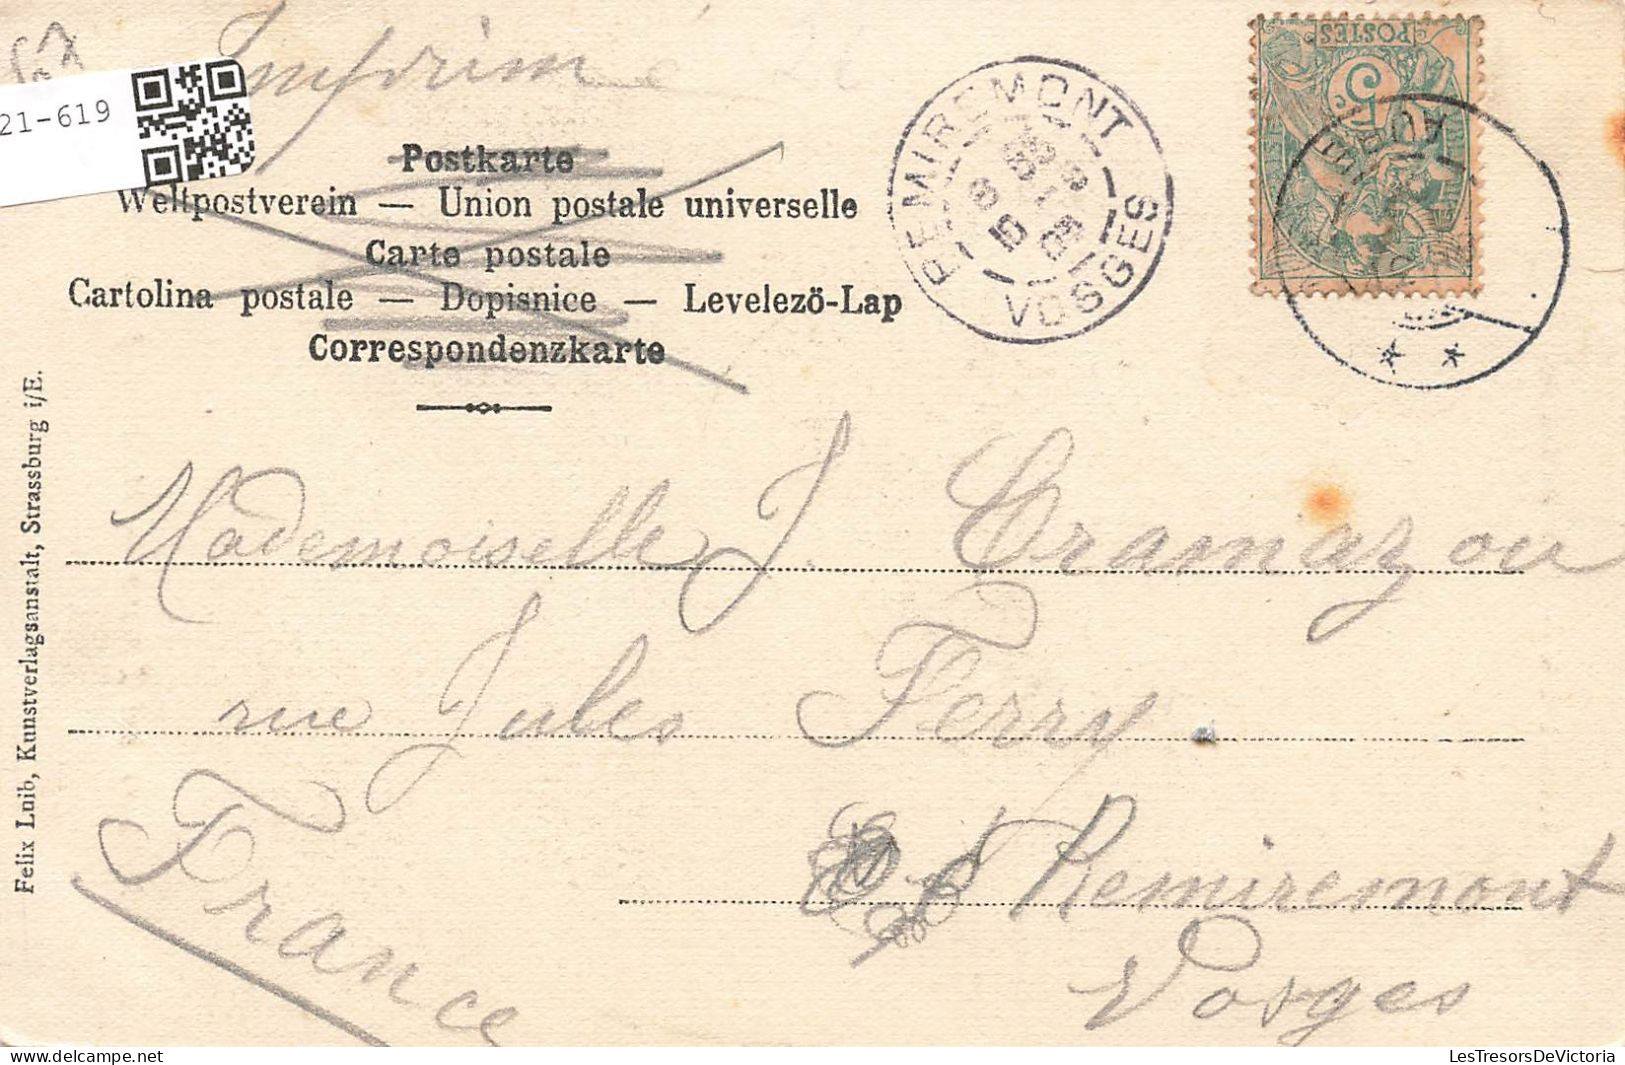 Imprimé
21-619
Postkarte
Weltpostverein — Union postale universelle
Carte postale
Cartolina postale — Dopisnice — Levelezö-Lap
Correspondenzkarte
REMIREMONT
VOSGES
POSTES
5
Mademoiselle J. Cramazou
rue Jules Ferry
à Remiremont
Vosges
France
Felix Luib, Kunstverlagsanstalt, Strassburg i/E.
LesTresorsDeVictoria